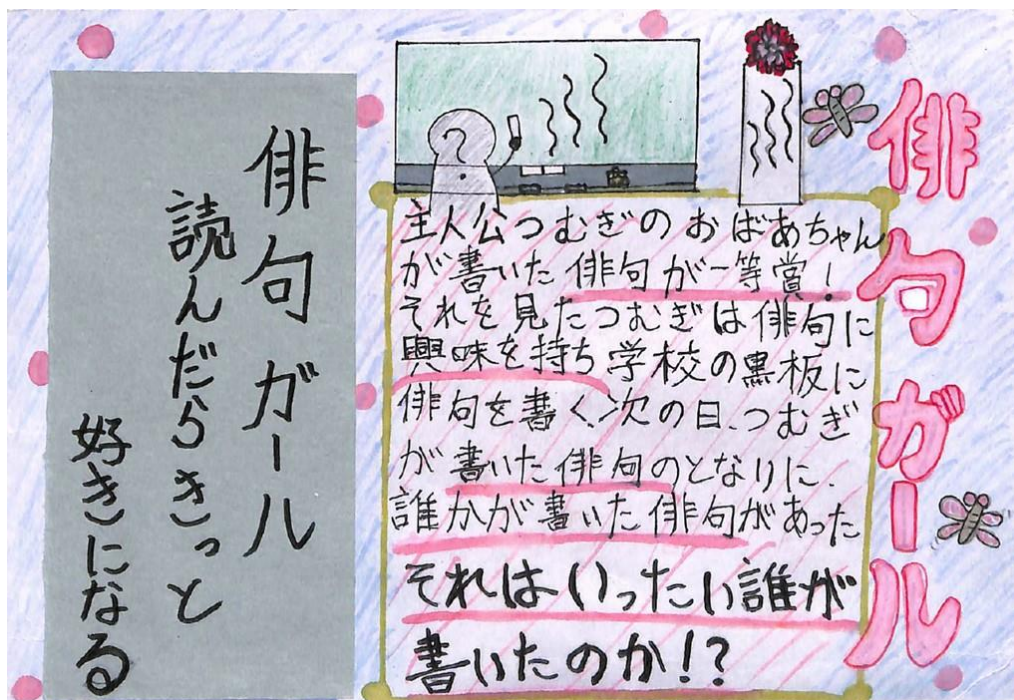 俳句ガール
主人公つむぎのおばあちゃん
が書いた俳句が一等賞!
それを見たつむぎは俳句に
興味を持ち学校の黒板に
俳句を書く、次の日、つむぎ
が書いた俳句のとなりに、
誰かが書いた俳句があった
それはいったい誰が
書いたのか!?
俳句ガール
読んだらきっと
好きになる